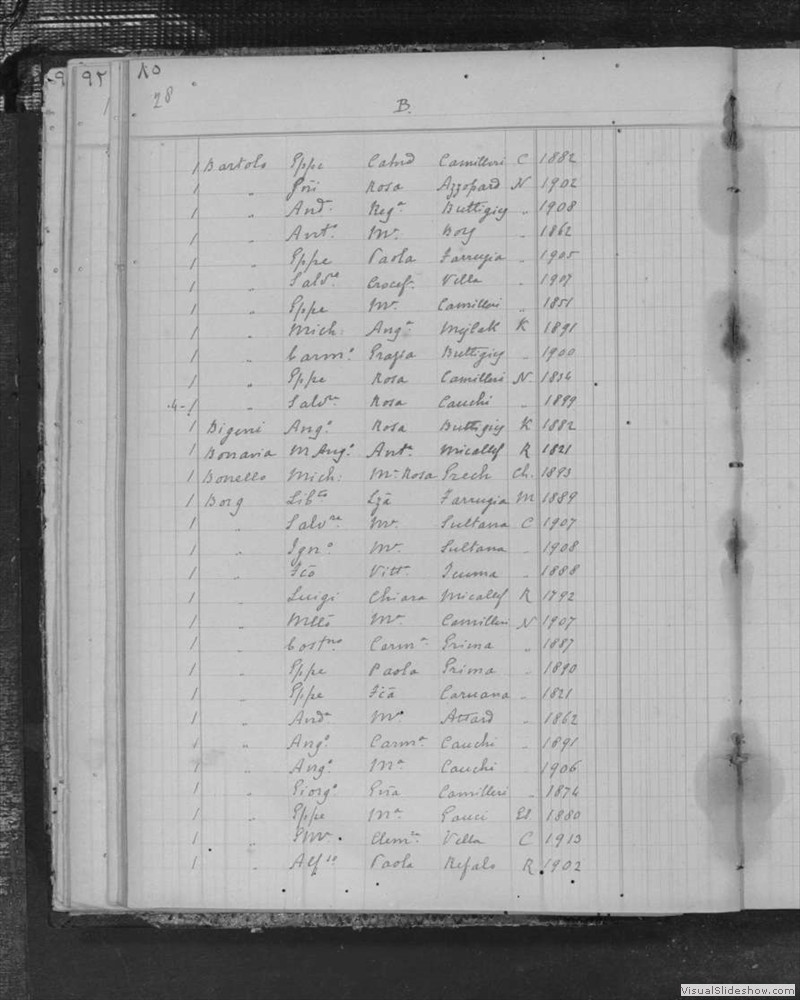 9 95 80
1 28 B.
1 Bartolo Gppe Catnd Camilleri C 1882
1 " Gori Rosa Azzopard N 1902
1 " Andª Regª Buttigieg " 1908
1 " Antº Mª Borg " 1862
1 " Gppe Paola Farrugia " 1905
1 " Salvre Crocef. Vella " 1907
1 " Gppe Mª Camilleri " 1851
1 " Mich: Angª Mejlak K 1891
1 " Carmº Grazia Buttigieg " 1900
1 " Gppe Rosa Camilleri N 1834
-4- 1 " Salvre Rosa Cauchi " 1899
1 Bigeni Angº Rosa Buttigieg K 1882
1 Bonnavia M Angº Antª Micallef R 1821
1 Bonello Mich: Mª Rosa Grech Ch. 1893
1 Borg Libto Lzā Farrugia M 1889
1 " Salvre Mª Sultana C 1907
1 " Ignº Mª Sultana " 1908
1 " Fcō Vittª Icuma " 1888
1 " Luigi Chiara Micallef R 1792
1 " Mllō Mª Camilleri N 1907
1 " Costno Carmª Grima " 1887
1 " Gppe Paola Grima " 1890
1 " Gppe Fcā Caruana " 1821
1 " Andª Mª Attard " 1862
1 " Angº Carmª Cauchi " 1891
1 " Angº Mª Cauchi " 1906
1 " Giorgº Gnā Camilleri " 1874
1 " Gppe Mª Gauci 1880
1 " Clemza Vella C 1913
1 " Alfso Paola Refalo R 1902
VisualSlideshow.com